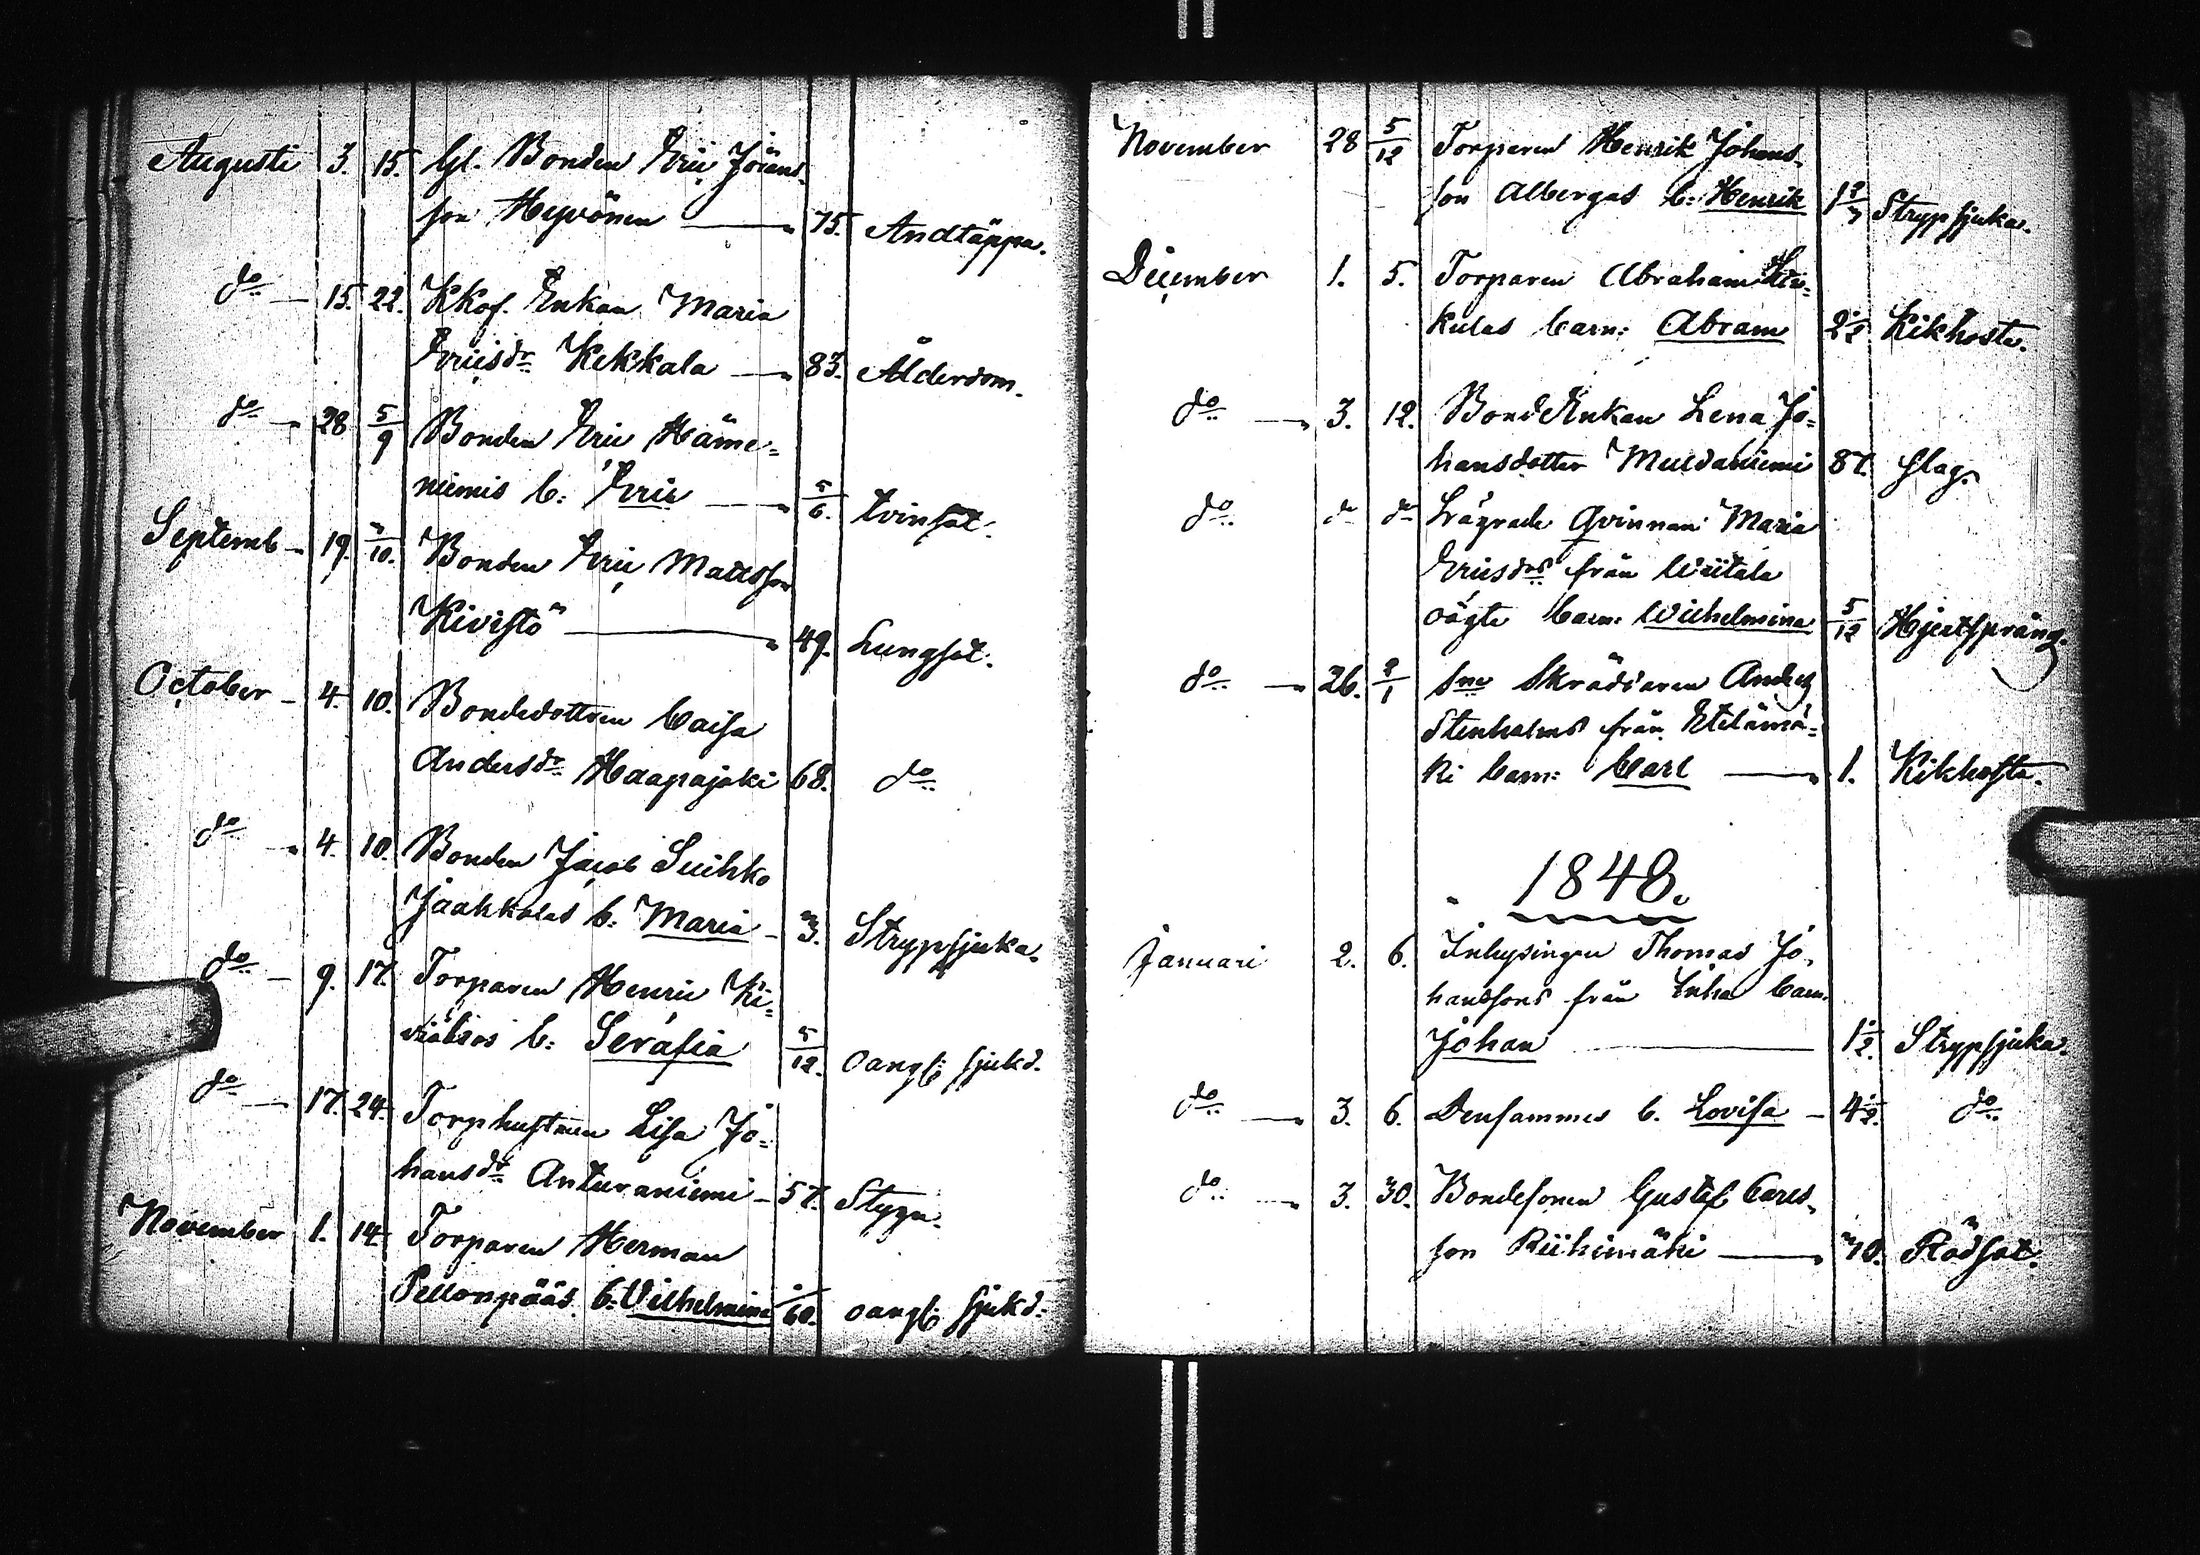 Augusti 3. 15. Gl. Bonden Eric Johans-
son Heyvönen — 75. Andtäppa.
do — 15. 22. Kkof. Enkan Maria
Ericsdr Kekkala — 83. Ålderdom.
do — 28 5/9 Bonden Eric Häme-
niemis b: Eric — 5/6. tvinsot.
Septemb — 19. 3/10. Bonden Eric Mattsson
Kivistö — 49. Lungsot.
October — 4. 10. Bondedottren Caisa
Andersdr Haapajoki 68. do
do — 4. 10. Bonden Jacob Suihko
Jaakkolas b: Maria — 3. Strypsjuka.
do — 9. 17. Torparen Henric Ki-
b: Serafia 5/12. oangf: sjukd.
do — 17. 24. Torphustrun Lisa Jo-
hansdr Anturaniemi — 57. Stygn.
November 1. 14. Torparen Herman
Pellonpääs b: Vilhelmina /60. oangf: sjukd:
November 28 5/12 Torparen Henrik Johans-
son Albergas b: Henrik 1 Strypsjuka.
December 1. 5. Torparen Abraham
kulas barn: Abram 2 1/2 Kikhosta.
do — 3. 12. BondEnkan Lena Jo-
hansdotter Muldaniemi 87. Slag.
do do do Lägrade Qvinnan Maria
Ericsdrs från Wiitala
oägte barn: Wilhelmina 5/12 Hjertsprång.
do — 26. 2/1 Sne Skräddaren Anders
Stenholms från Etelämä-
ki barn: Carl — 1. Kikhosta.
1848.
Januari 2. 6. Inhysingen Thomas Jo-
hanssons från Inha barn
Johan — 1 1/2. Strypsjuka.
do — 3. 6. Densammes b. Lovisa — 4 1/2. do
do — 3. 30. Bondesonen Gustaf Carls-
son Riihimäki — 70. Rödsot.